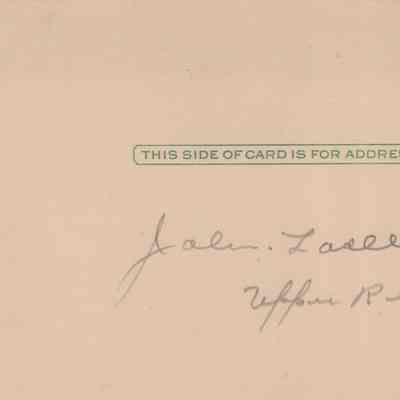 THIS SIDE OF CARD IS FOR ADDRE
John. Lasell
Upper R